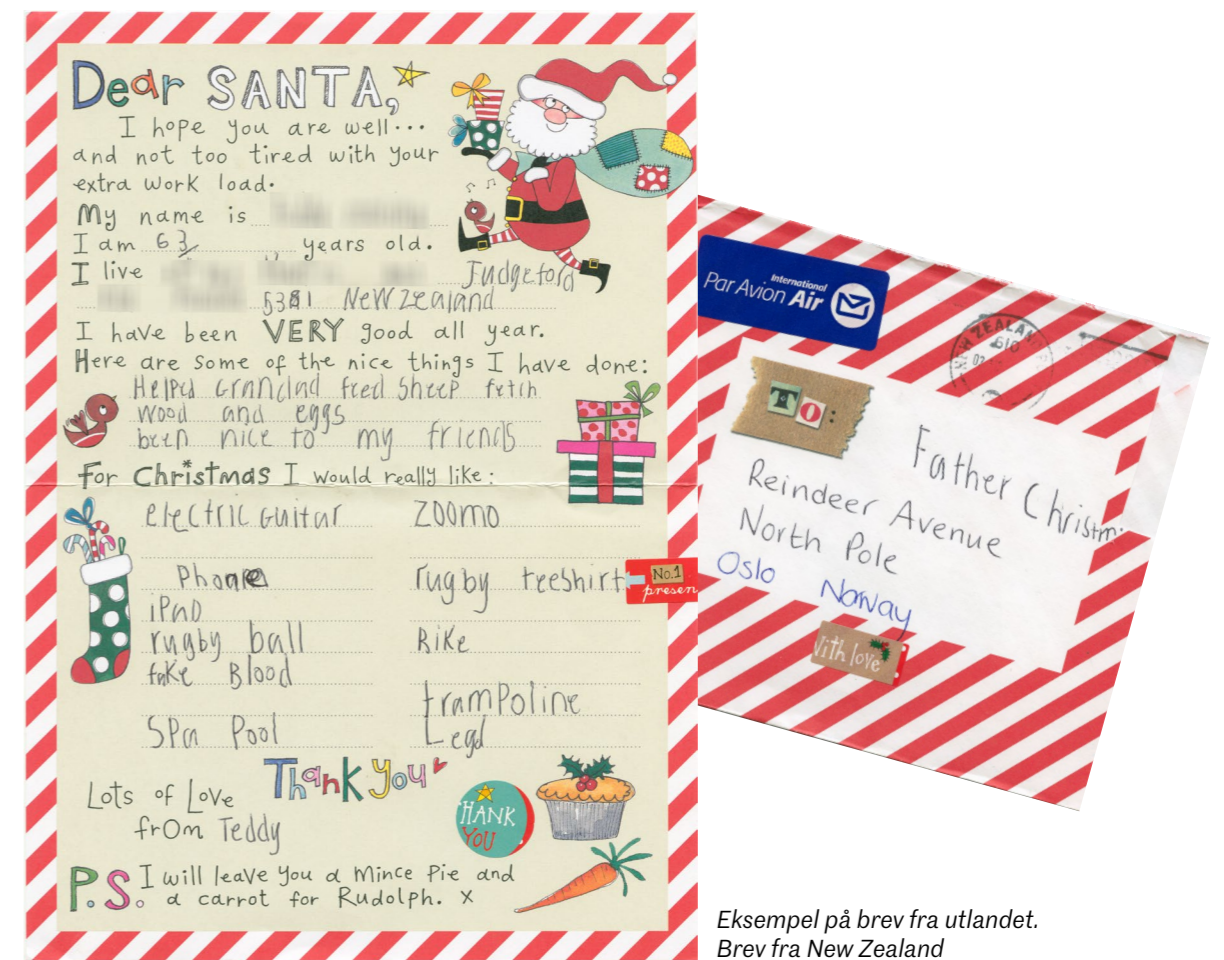 Dear SANTA,
I hope you are well...
and not too tired with your
extra work load.
My name is
I am 6 3/4 years old.
I live Judgeford
5381 New Zealand
I have been VERY good all year.
Here are some of the nice things I have done:
Helped Grandad feed sheep fetch
wood and eggs
been nice to my friends
For Christmas I would really like:
electric guitar
Phone
iPad
rugby ball
fake Blood
SPa Pool
ZOOMO
rugby teeshirt
Bike
tramPoline
Lego
No.1
presen
Thank you
Lots of Love
from Teddy
THANK
YOU
P.S. I will leave you a Mince Pie and
a carrot for Rudolph. x
International
Par Avion Air
NEW ZEALAN
TO:
Father Christm
Reindeer Avenue
North Pole
Oslo Norway
With love
Eksempel på brev fra utlandet.
Brev fra New Zealand